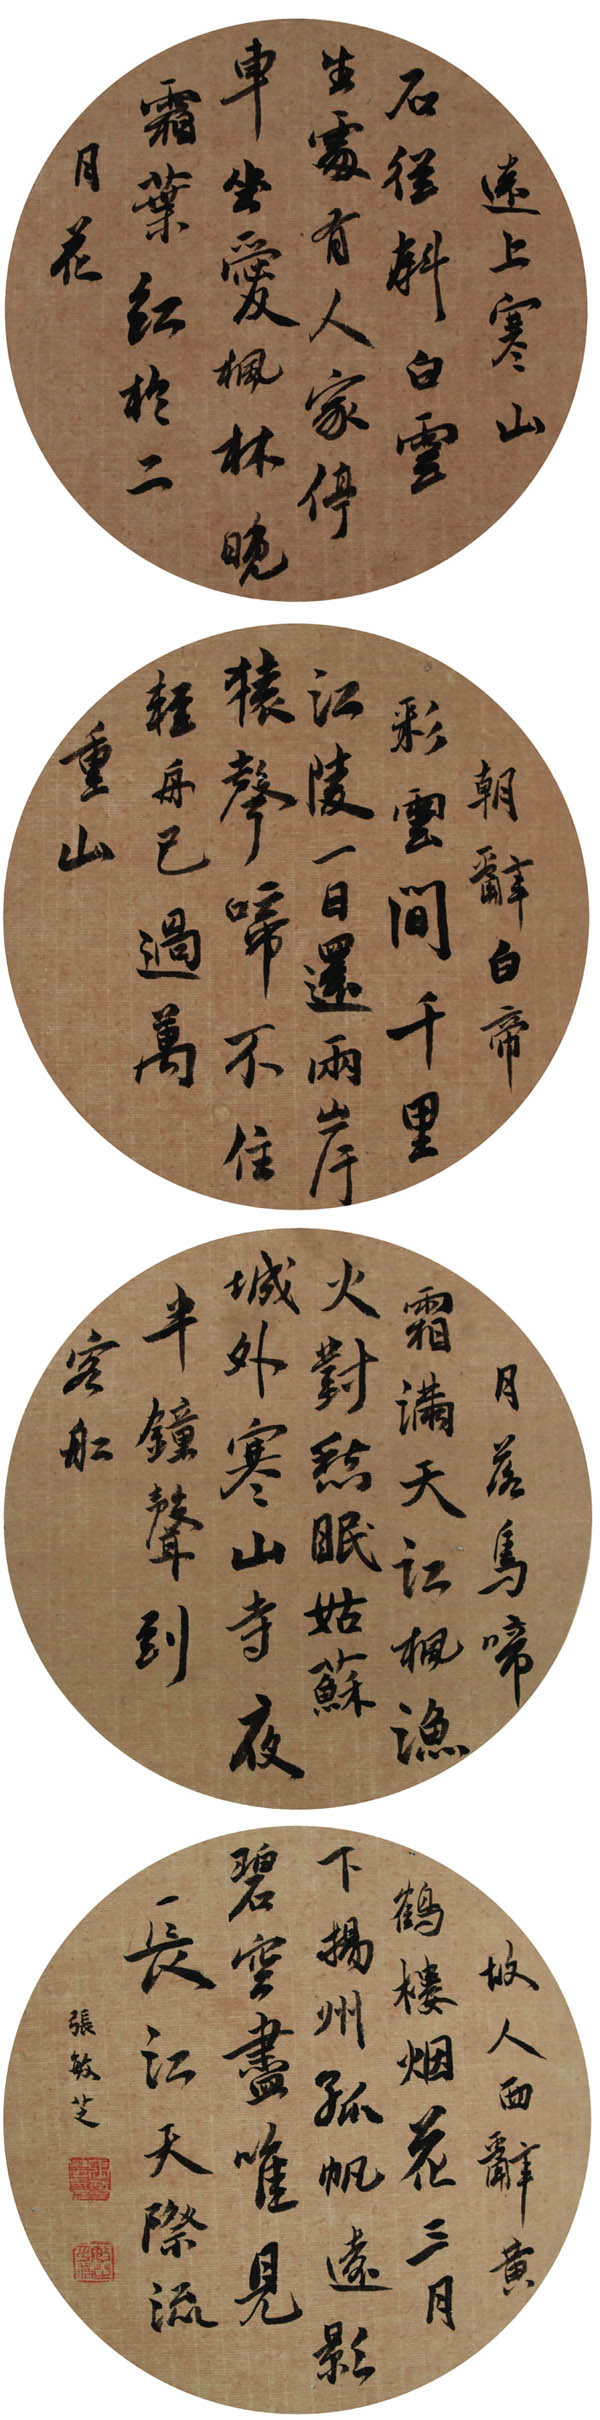 遠上寒山
石徑斜白雲
生處有人家停
車坐愛楓林晚
霜葉紅於二
月花
朝辭白帝
彩雲間千里
江陵一日還兩岸
猿聲啼不住
輕舟已過萬
重山
月落烏啼
霜滿天江楓漁
火對愁眠姑蘇
城外寒山寺夜
半鐘聲到
客船
故人西辭黃
鶴樓烟花三月
下揚州孤帆遠影
碧空盡唯見
長江天際流
張敏芝